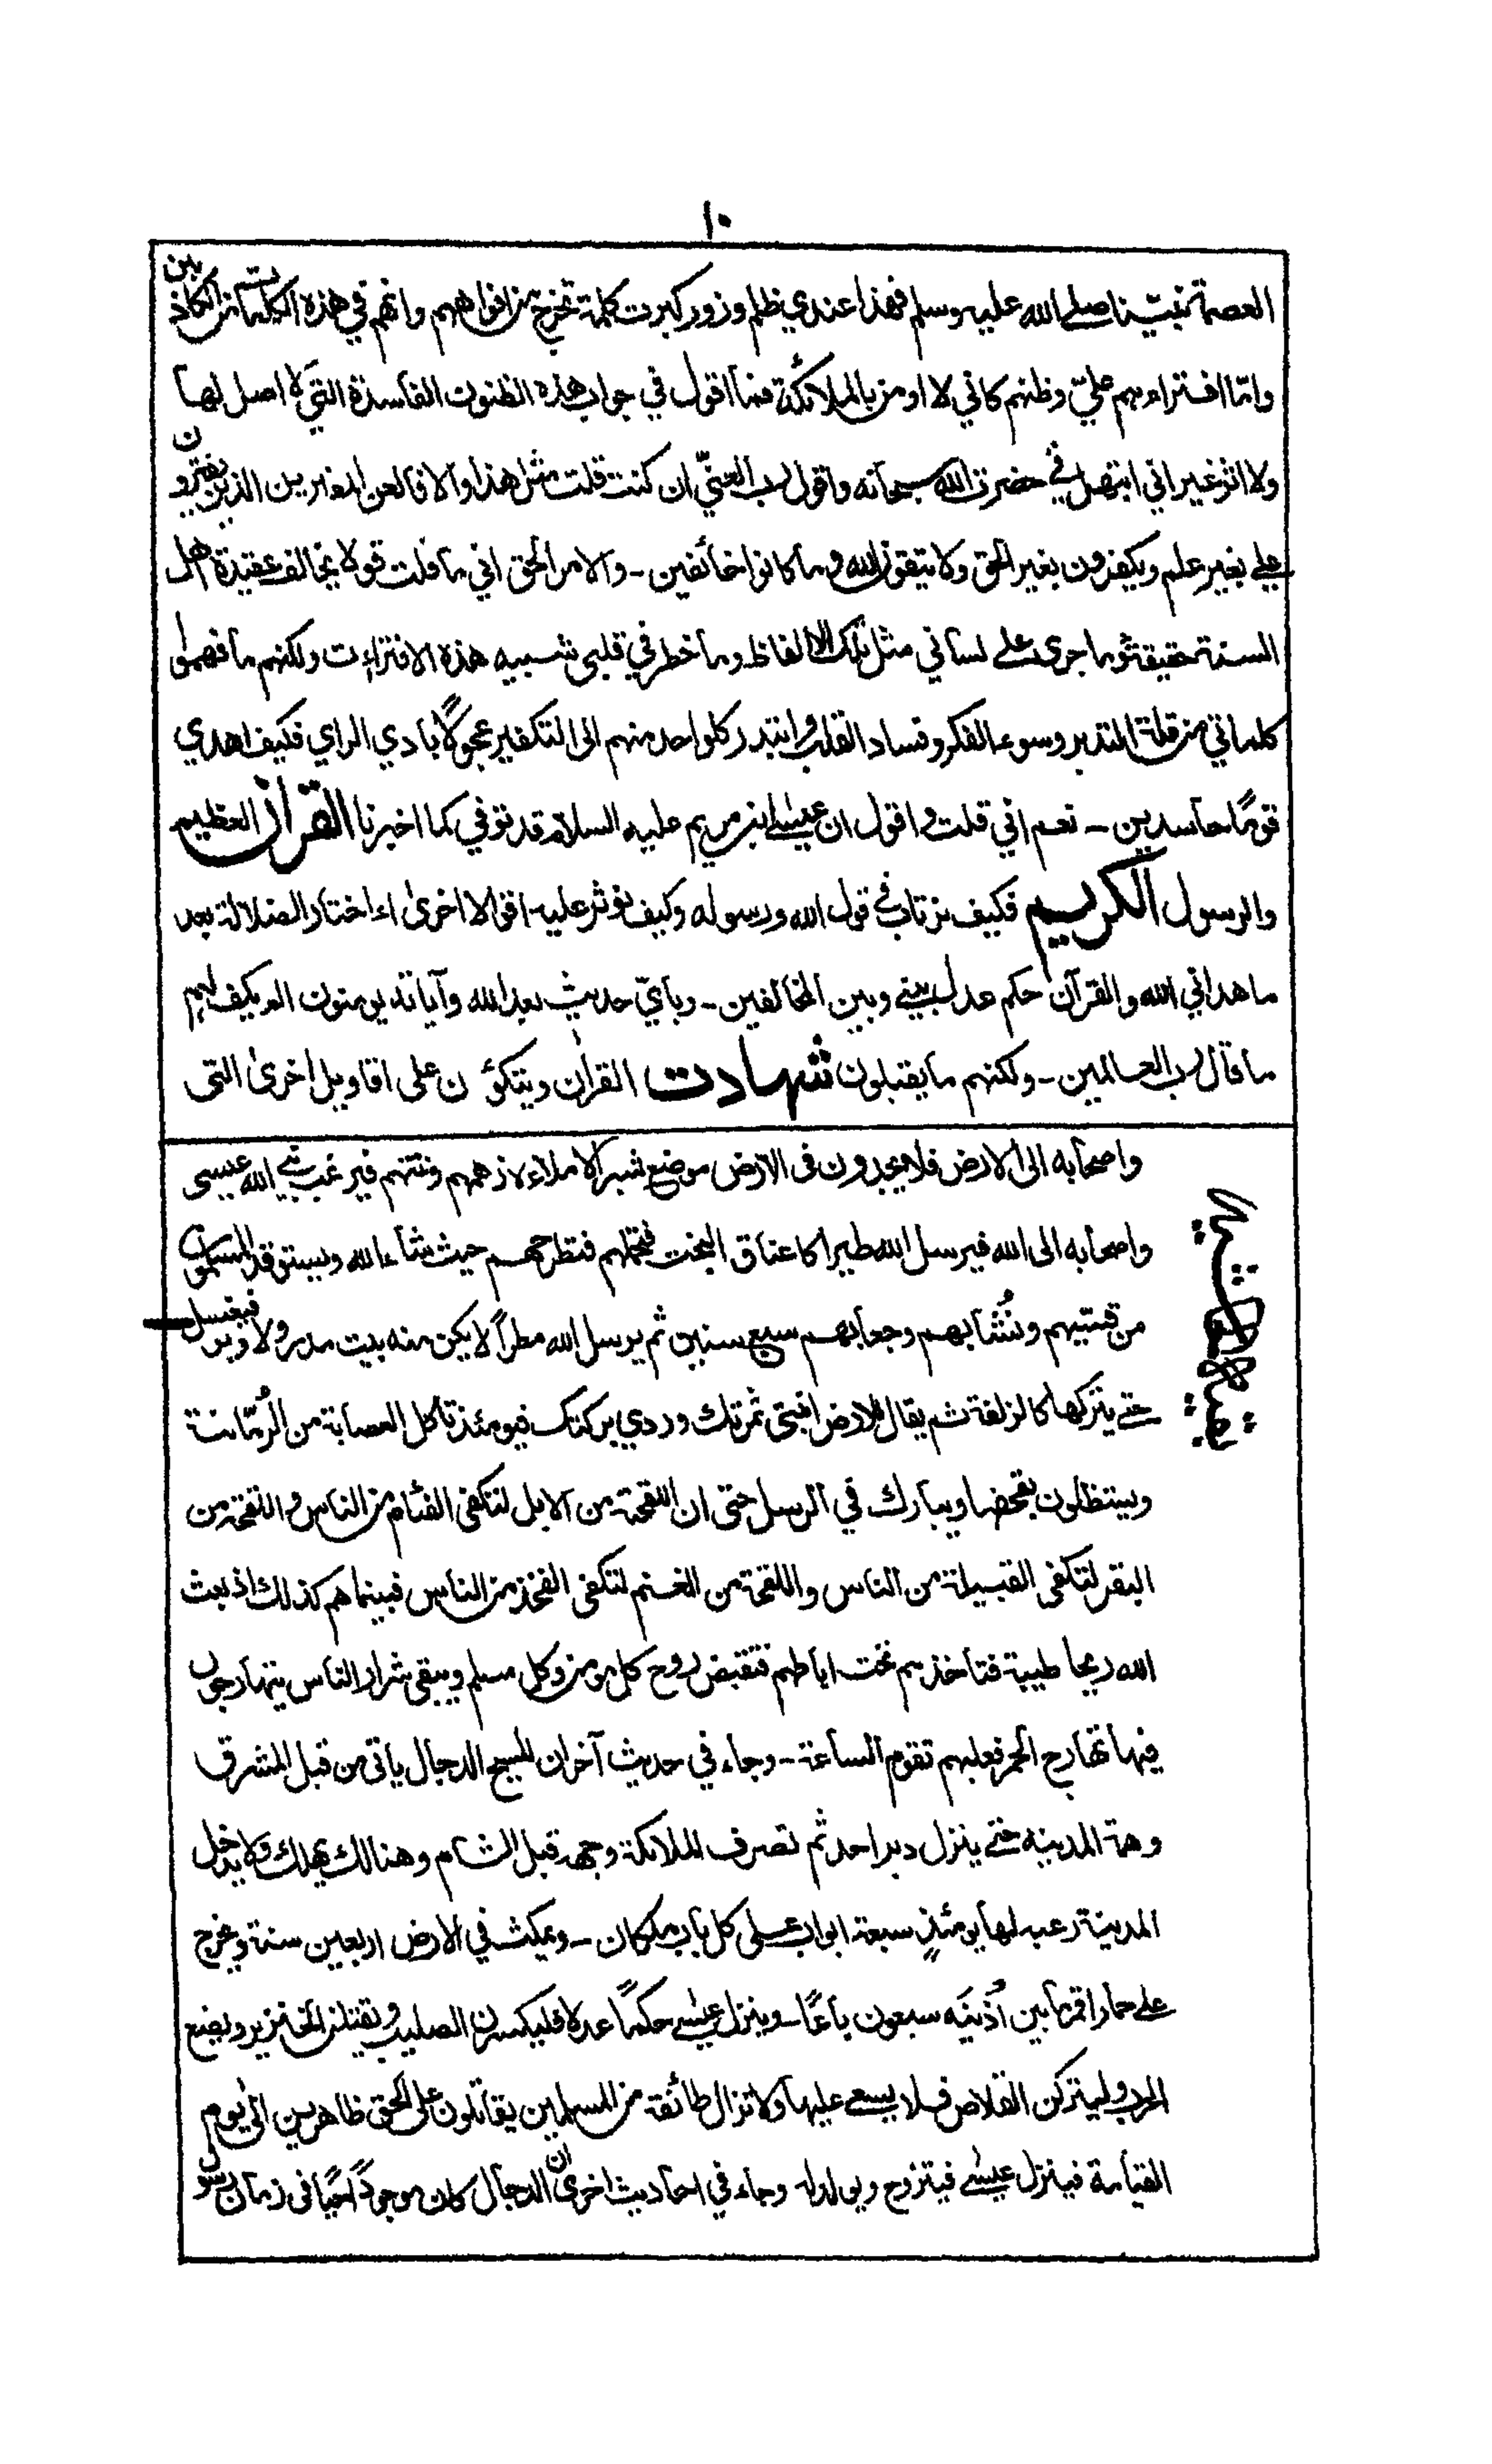 ١٠
العصمة نبيّنا صلى الله عليه وسلم فهذا عندي ظلم وزور كبرت كلمة تخرج من افواههم وانهم في هذه الكلمة من الكاذبين
وامّا افتراءهم عليّ وظنهم كاني لا اومن بالملائكة فما اقول في جواب هذه الظنون الفاسدة التي لا اصل لها
ولا اثر غير اني ابتهل في حضرت الله سبحانه واقول رب العنّي ان كنت قلت مثل هذا والا فالعن المفترين الذين يفترون
على بغير علم ويكفرون بغير الحق ولا يتقون الله وما كانوا خائفين - والامر الحق اني ما قلت قولا يخالف عقيدة اهل
السنة حقيقة وما جرى على لساني مثل تلك الالفاظ وما خطر في قلبي شبيه هذه الافتراءت ولكنهم ما فهموا
كلماتي من قلة التدبر وسوء الفكر وفساد القلب وابتدر كلواحد منهم الى التكفير عجولًا بادي الراي فكيف اهدي
قومًا حاسدين - نعم اني قلت واقول ان عيسى ابن مريم عليه السلام قد توفي كما اخبرنا القرآن العظيم
والرسول الكريم فكيف نرتاب في قول الله ورسوله وكيف نوثر عليه اقوالا اخرى ءاختار الضلالة بعد
ما هداني الله والقرآن حكم عدل بيني وبين المخالفين - وباَيّ حديث بعد الله وآياته يومنون الم يكف لهم
ما قال رب العالمين - ولكنهم ما يقبلون شهادت القران ويتكؤن على اقاويل اخرى التى
واصحابه الى الارض فلا يجدون فى الارض موضع شبر الا ملاءه زهمهم ونتنهم فيرغب نبي الله عيسى
واصحابه الى الله فيرسل الله طيرا كاعناق البخت فتحملهم فتطرحهم حيث شاء الله ويستوقد المسلمون
من قسيّهم ونُشّابهم وجعابهم سبع سنين ثم يرسل الله مطراً لا يكن منه بيت مدر ولا وبر فيغسل
حتى يتركها كالزلفة ثم يقال للارض انبتى ثمرتك وردي بركتك فيومئذ تاكل العصابة من الرُمّانة
ويستظلون بقحفها ويبارك في الرسل حتى ان اللقحة من الابل لتكفى الفئام من الناس واللقحة من
البقر لتكفى القبيلة من الناس واللقحة من الغنم لتكفى الفخذ من الناس فبينما هم كذلك اذ بعث
الله ريحا طيبة فتاخذهم تحت اباطهم فتقبض روح كل مومن وكل مسلم ويبقى شرار الناس يتهارجون
فيها تهارج الحمر فعليهم تقوم الساعة - وجاء في حديث آخر ان المسيح الدجال ياتى من قبل المشرق
وهمة المدينة حتى ينزل دبر احد ثم تصرف الملائكة وجهه قبل الشام وهنالك يهلك ولا يدخل
المدينة رعبه لها يومئذٍ سبعة ابواب على كل باب ملكان - ويمكث في الارض اربعين سنة ويخرج
على حمار اقمر ما بين اُذنيَه سبعون باعًا - وينزل عيسى حكمًا عدلا فليكسرن الصليب ويقتلن الخنزير ويضع
الحرب وليتركن القلاص فلا يسعى عليها ولا تزال طائفة من المسلمين يقاتلون على الحق ظاهرين الى يوم
القيامة فينزل عيسى فيتزوج ويولد له وجاء في احاديث اخرى ان الدجال كان موجودًا حيًا فى زمان رسول